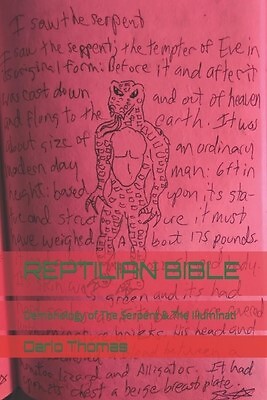 I saw the serpent
I saw the serpent; the tempter of Eve in
its original form: Before it and after it
was cast down and out of heaven
and flong to the earth. It was
about size of an ordinary
modern day man: 6ft in
height: based upon its sta-
ture and struct ure it must
have weighed A bout 175 pounds.
REPTILIAN BIBLE
Demonology of The Serpent & The Illuminati
green and its had
his head and
Dario Thomas
Lizard and Alligator. It had
chest a beige breastplate;